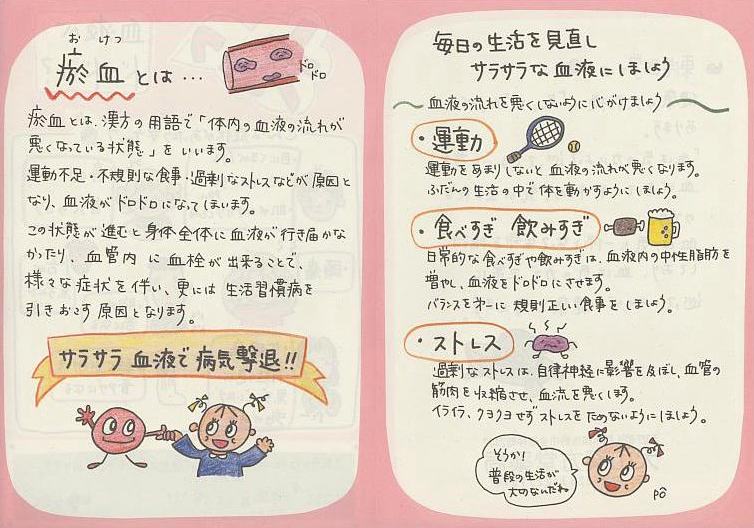 おけつ
瘀血とは…
ドロドロ
瘀血とは、漢方の用語で「体内の血液の流れが
悪くなっている状態」をいいます。
運動不足・不規則な食事・過剰なストレスなどが原因と
なり、血液がドロドロになってしまいます。
この状態が進むと身体全体に血液が行き届かな
かったり、血管内に血栓が出来ることで、
様々な症状を伴い、更には生活習慣病を
引きおこす原因となります。
サラサラ血液で病気撃退!!
毎日の生活を見直し
サラサラな血液にしましょう
血液の流れを悪くしないように心がけましょう
・運動
運動をあまりしないと血液の流れが悪くなります。
ふだんの生活の中で体を動かすようにしましょう。
・食べすぎ 飲みすぎ
日常的な食べすぎや飲みすぎは、血液内の中性脂肪を
増やし、血液をドロドロにさせます。
バランスを第一に規則正しい食事をしましょう。
・ストレス
過剰なストレスは、自律神経に影響を及ぼし、血管の
筋肉を収縮させ、血流を悪くします。
イライラ、クヨクヨせずストレスをためないようにしましょう。
そうか!
普段の生活が
大切なんだね